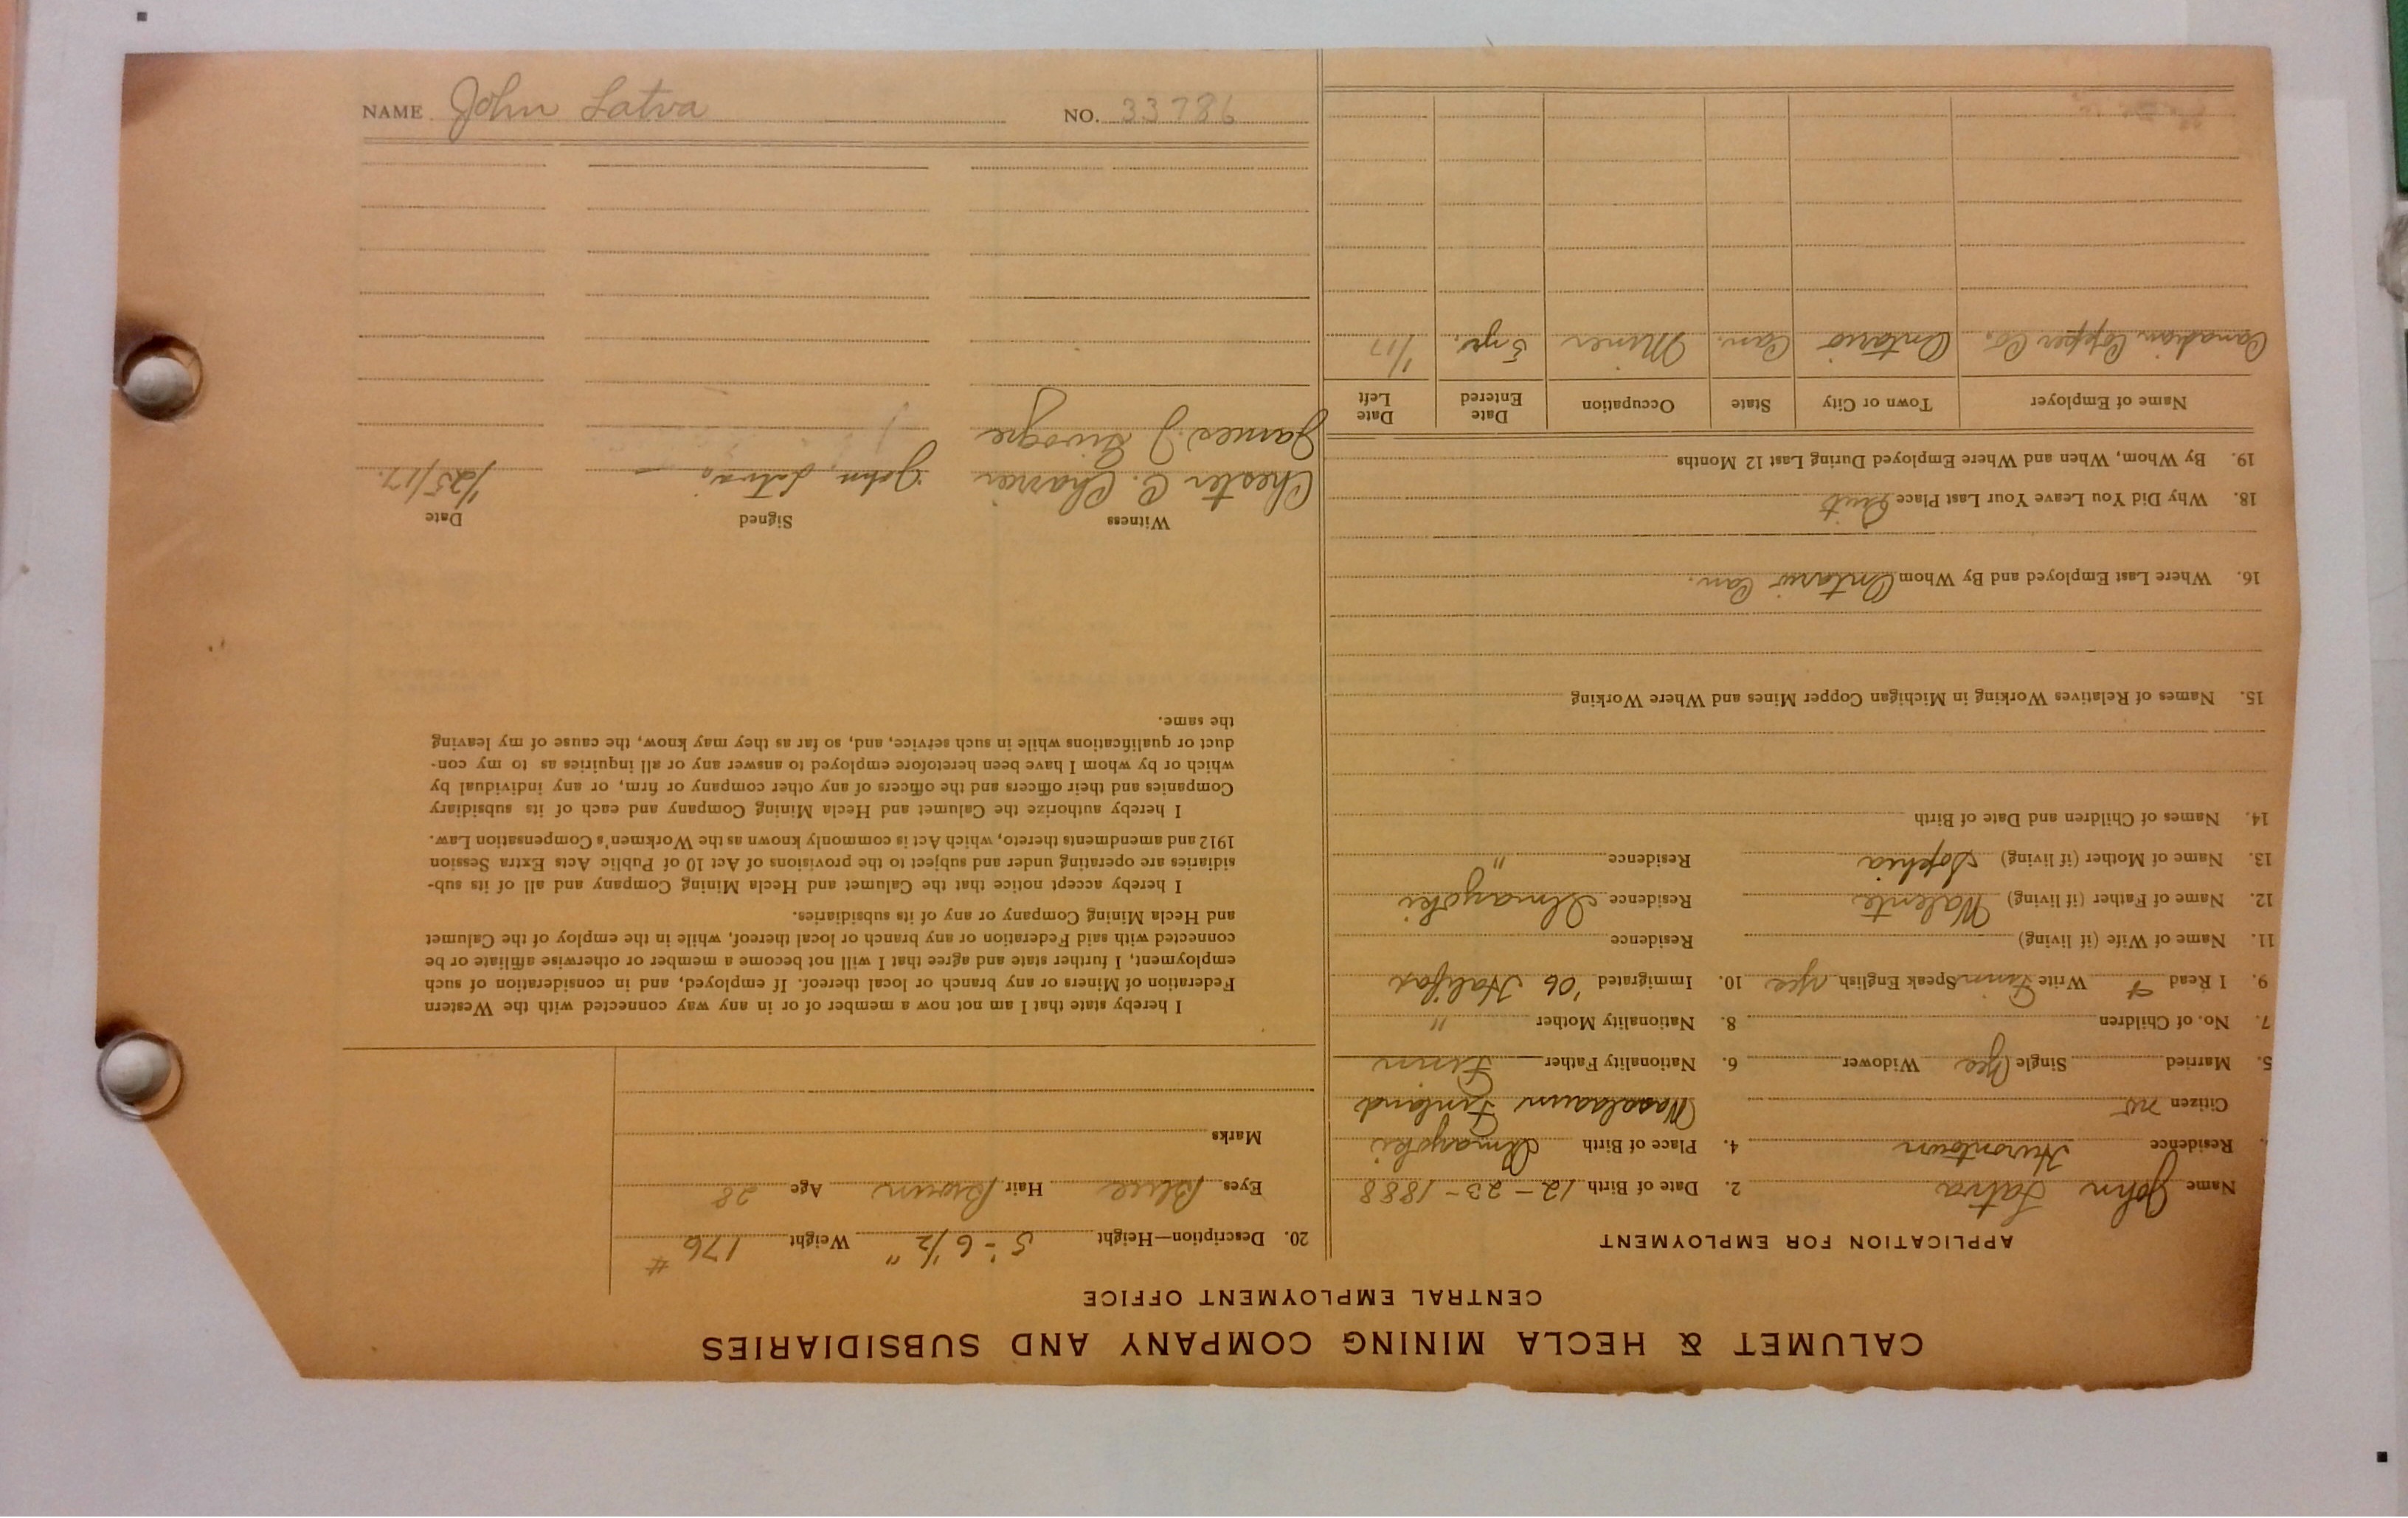 NAME John Latva NO. 33786
CALUMET & HECLA MINING COMPANY AND SUBSIDIARIES
CENTRAL EMPLOYMENT OFFICE
APPLICATION FOR EMPLOYMENT
Name John Latva 2. Date of Birth 12-23-1888
Residence Hurontown 4. Place of Birth Ilmayoki
Citizen no Wasalaani Finland
5. Married Single Yes Widower 6. Nationality Father Finn
7. No. of Children 8. Nationality Mother "
9. I Read & Write Finn Speak English yes 10. Immigrated '06 Halifax
11. Name of Wife (if living) Residence
12. Name of Father (if living) Walente Residence Ilmayoki
13. Name of Mother (if living) Sophia Residence "
14. Names of Children and Date of Birth
15. Names of Relatives Working in Michigan Copper Mines and Where Working
16. Where Last Employed and By Whom Ontario Can.
18. Why Did You Leave Your Last Place Quit
19. By Whom, When and Where Employed During Last 12 Months
Name of Employer Town or City State Occupation Date Entered Date Left
Canadian Copper Co. Ontario Can. Miner 3 yr. 1/17
20. Description—Height 5'-6 1/2" Weight 176 #
Eyes Blue Hair Brown Age 28
Marks
I hereby state that I am not now a member of or in any way connected with the Western
Federation of Miners or any branch or local thereof. If employed, and in consideration of such
employment, I further state and agree that I will not become a member or otherwise affiliate or be
connected with said Federation or any branch or local thereof, while in the employ of the Calumet
and Hecla Mining Company or any of its subsidiaries.
I hereby accept notice that the Calumet and Hecla Mining Company and all of its sub-
sidiaries are operating under and subject to the provisions of Act 10 of Public Acts Extra Session
1912 and amendments thereto, which Act is commonly known as the Workmen's Compensation Law.
I hereby authorize the Calumet and Hecla Mining Company and each of its subsidiary
Companies and their officers and the officers of any other company or firm, or any individual by
which or by whom I have been heretofore employed to answer any or all inquiries as to my con-
duct or qualifications while in such service, and, so far as they may know, the cause of my leaving
the same.
Witness Signed Date
Chester C. John Latva 1/25/17.
James J.